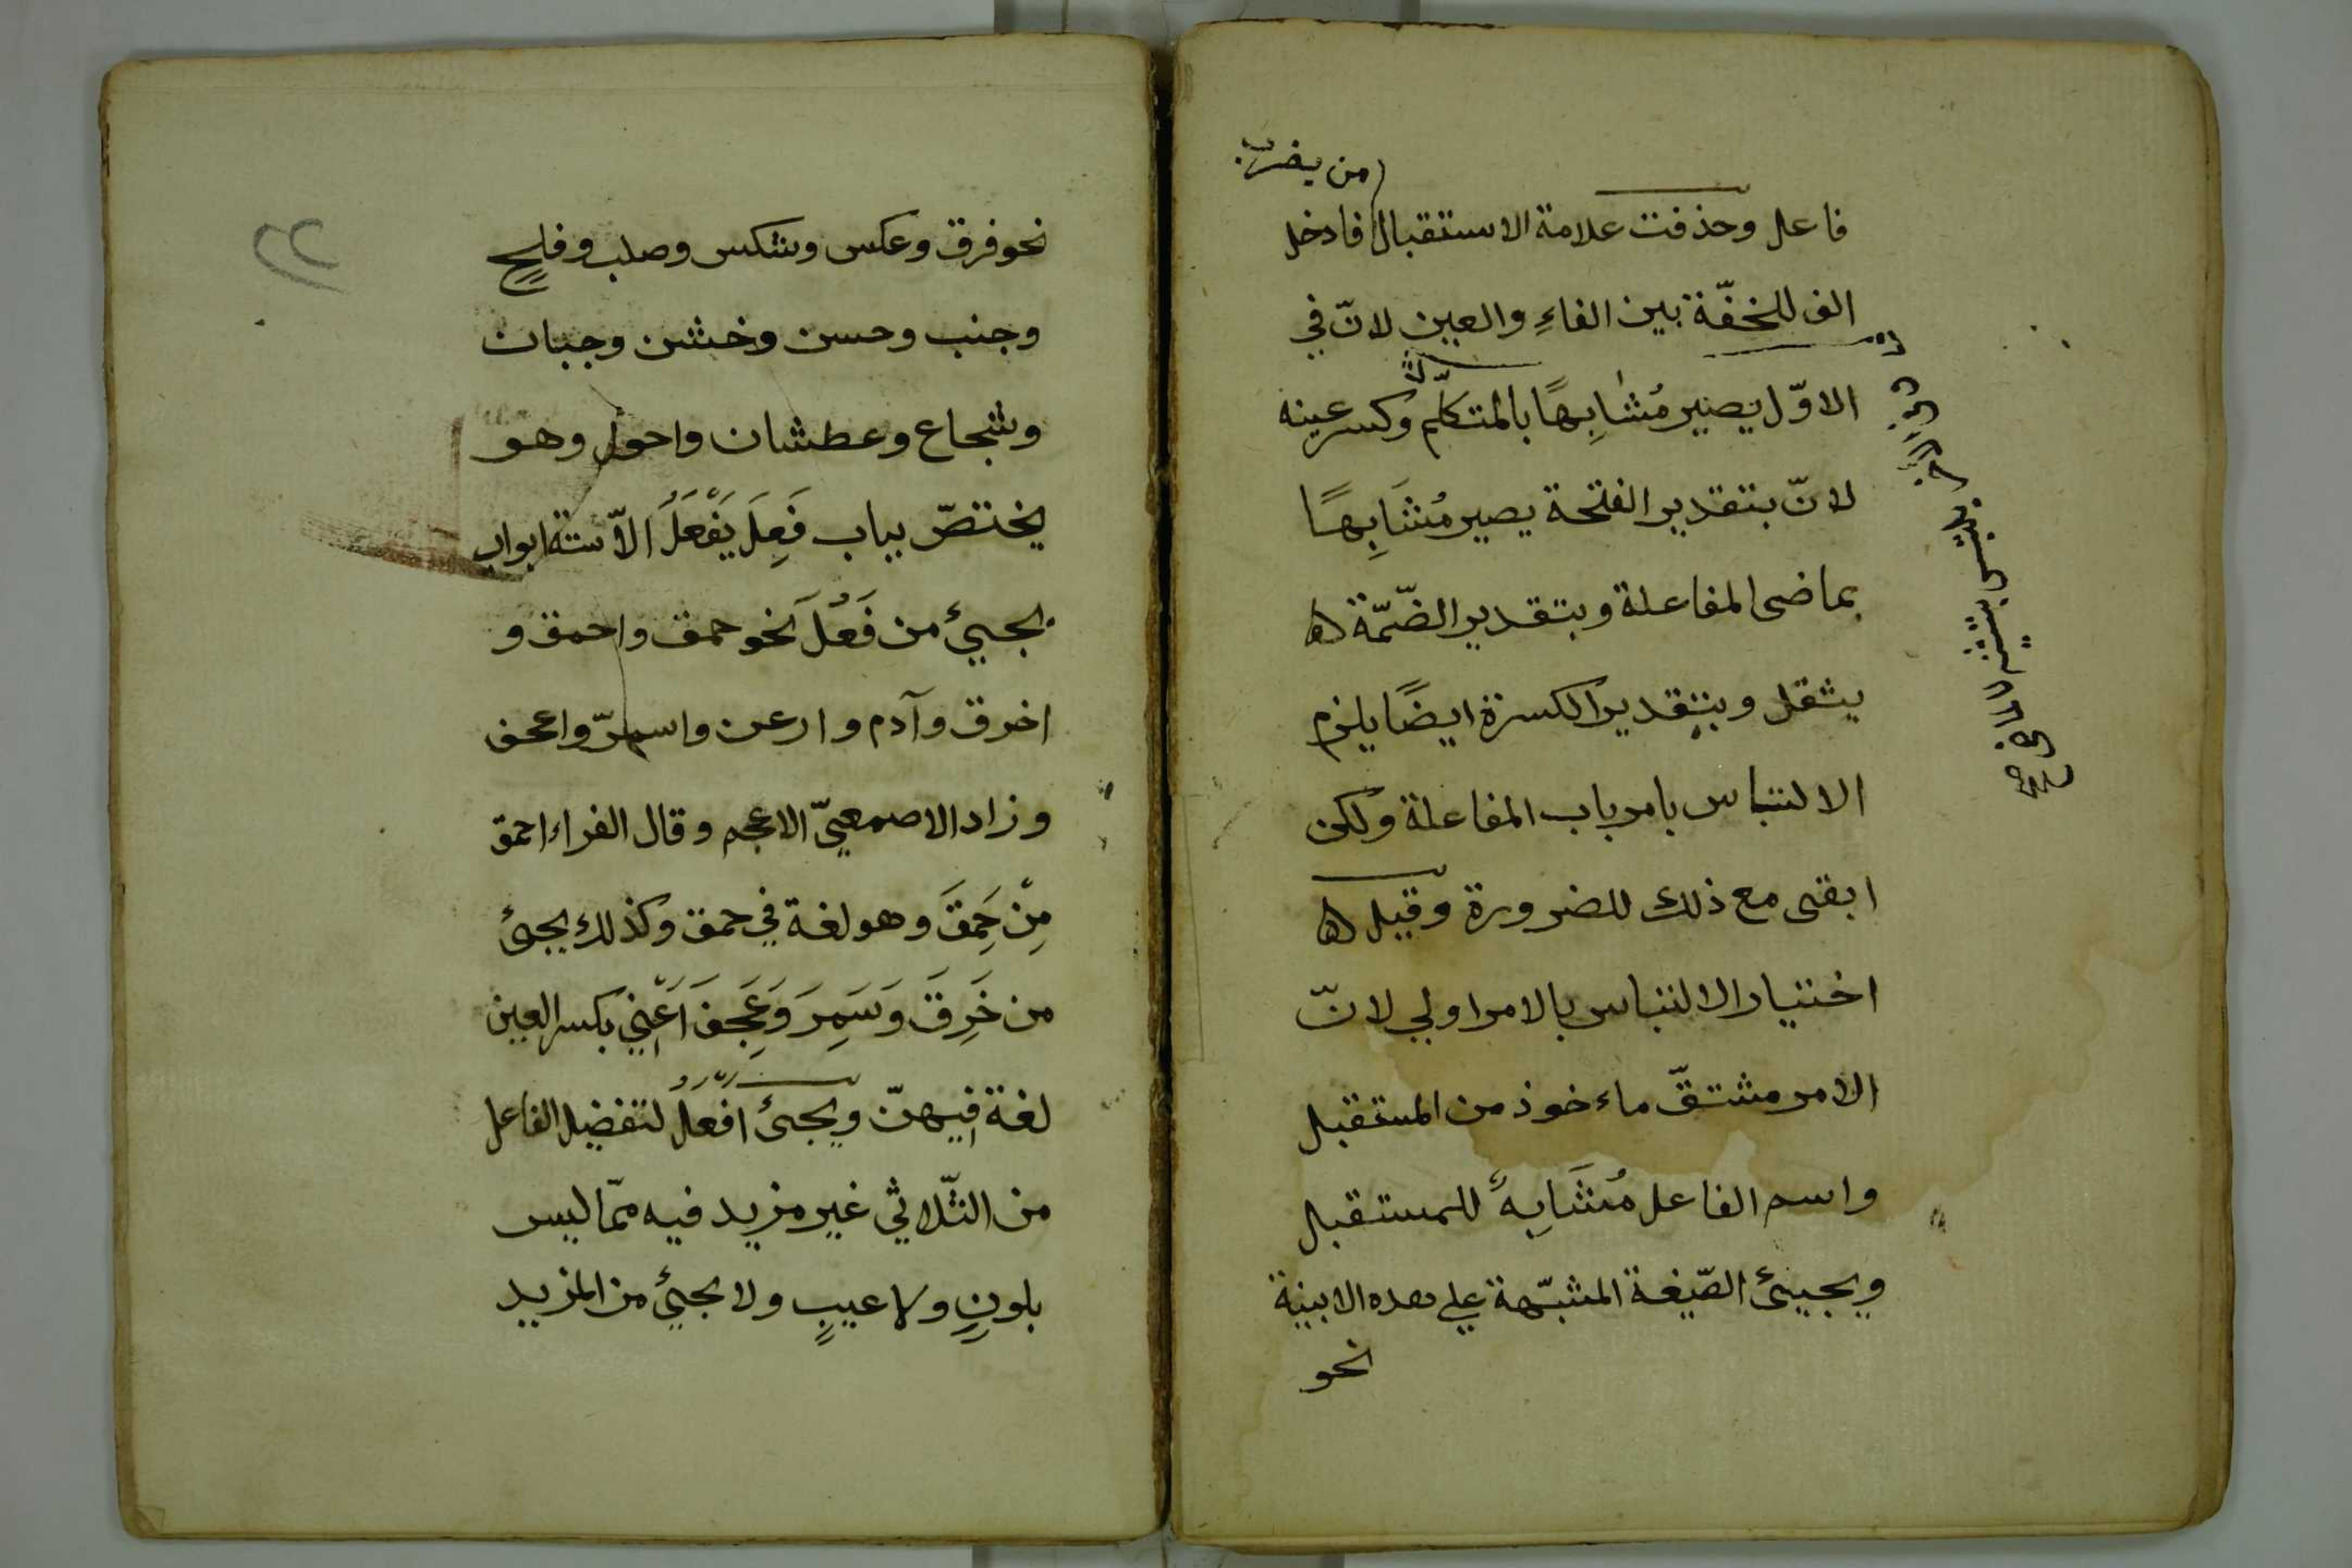 من يضرب
فاعل وحذفت علامة الاستقبال فادخل
الف للخفّة بين الفاءِ والعين لانّ في
الاوّل يصير مُشابِهًا بالمتكلّم وكسر عينه
لانّ بتقدير الفتحة يصير مُشَابِهًا
بماضى المفاعلة وبتقدير الضّمّة
يثقل وبتقدير الكسرة ايضًا يلزم
الالتباس بامر باب المفاعلة ولكن
ابقى مع ذلك للضرورة وقيل
اختيار الالتباس بالامر اولي لانّ
الامر مشتقّ ماءخوذ من المستقبل
واسم الفاعل مُشَابِهٌ للمستقبل
ويجيئ الصّيغة المشبّهة علي هده الابنية
نحو
وفي الآخر يلتبس بتثنية الماضي
نحو فرق وعكس وشكس وصلب وفلحٍ
وجنب وحسن وخشن وجبان
وشجاع وعطشان واحول وهو
يختصّ بباب فَعِلَ يَفْعَلُ الاّ ستة ابواب
يجيئ من فَعُلَ نحو حمق واحمق و
اخرق وآدم وارعن واسمرّ واعجف
وزاد الاصمعيّ الاعجم وقال الفراء احمق
مِنْ حَمِقَ وهو لغة في حمق وكذلك يجئ
من خَرِقَ وَسَمِرَ وَعَجِفَ اَعْنِي بكسر العين
لغة فيهنّ ويجئ افعَلُ لتفضيل الفاعل
من الثّلاثي غير مزيد فيه ممّا ليس
بلونٍ ولا عيبٍ ولا يجئ من المزيد
٢٢